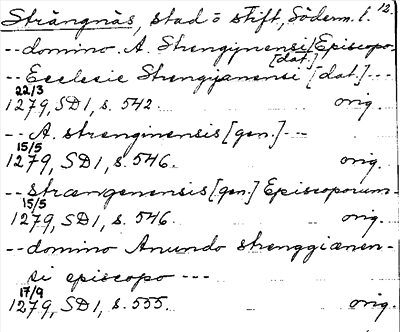 Strängnäs, stad o stift, Söderm. l. 12.
--domino. A. Strengynensi Episcopo-
[dat.]
--Ecclesie Strengyanensi [dat.]---
22/3
1279, SD1, s. 542. orig.
--A. strenginensis [gen.]---
15/5
1279, SD1, s. 546. orig.
--strængenensis [gen.] Episcoporum-
15/5
1279, SD1, s. 546. orig.
--domino Anundo strenggianen-
si episcopo ---
17/9
1279, SD1, s. 555. orig.